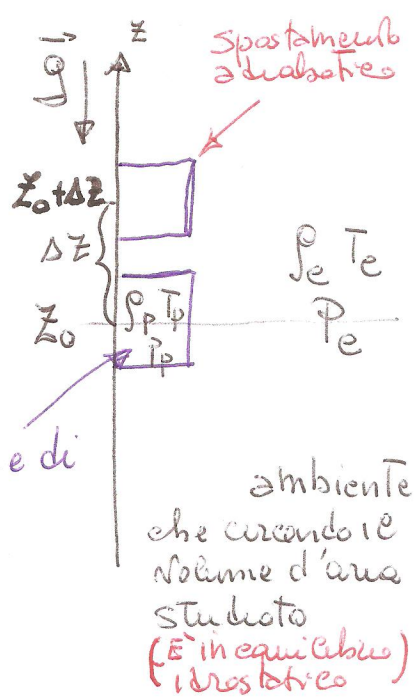 g
z
spostamento
adiabatico
Z₀+ΔZ
ΔZ
Z₀
ρp Tp
Pp
ρe Te
Pe
e di
ambiente
che circonda il
volume d'aria
studiato
(È in equilibrio
idrostatico)